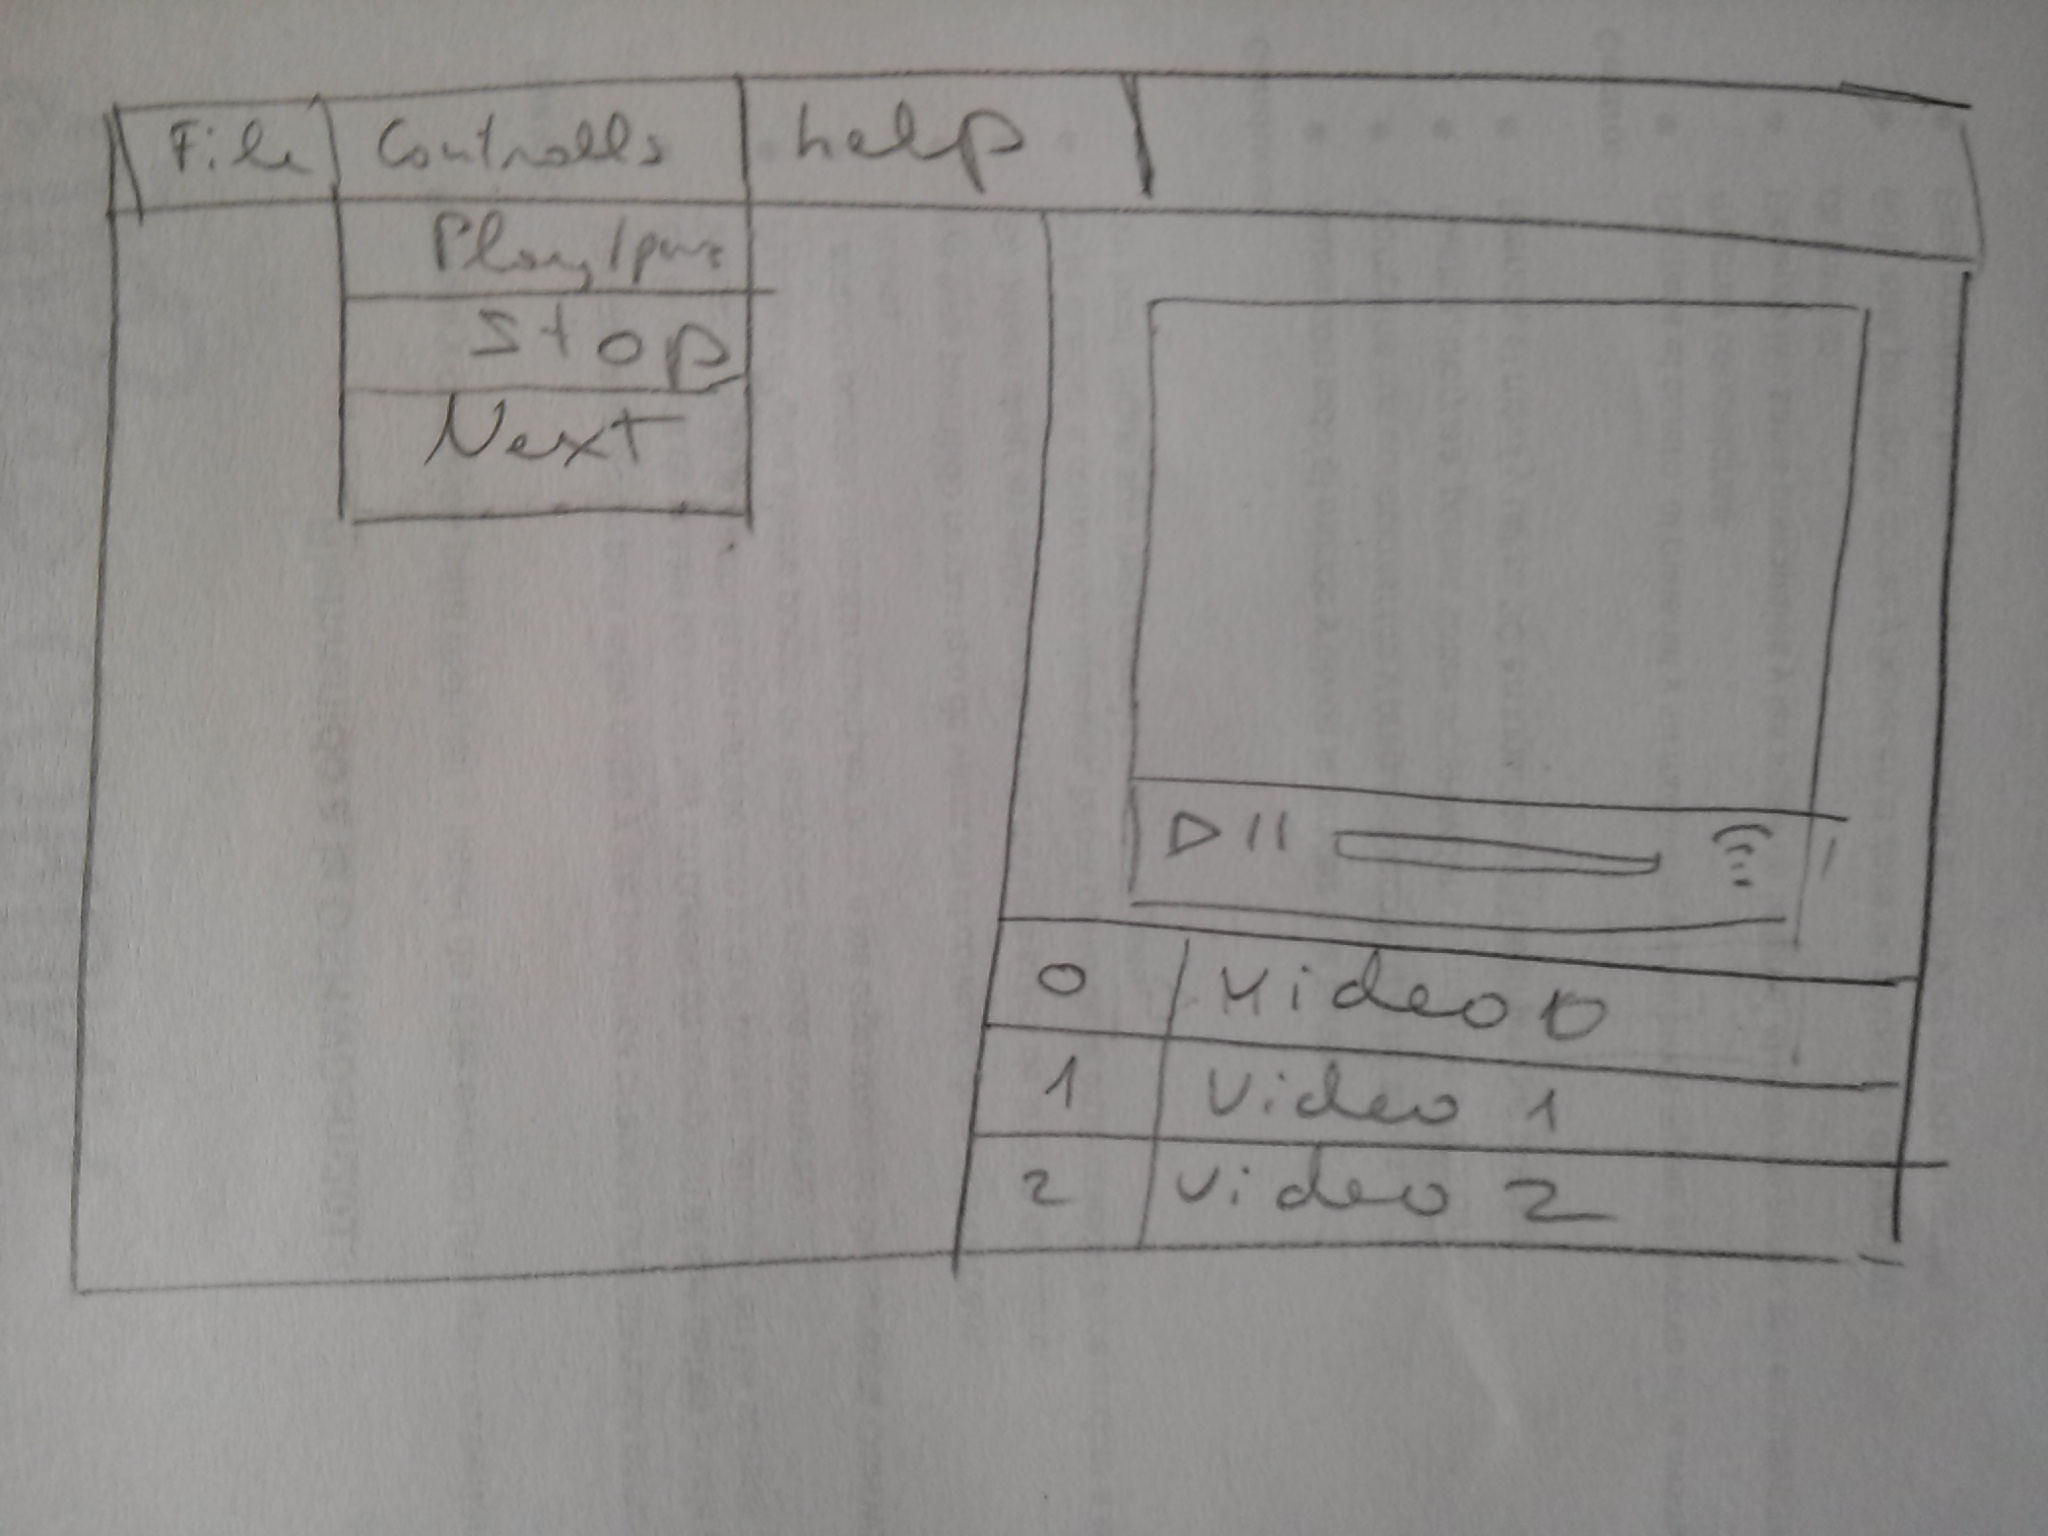 File Controlls help
Play/paus
Stop
Next
0 Video 0
1 Video 1
2 Video 2